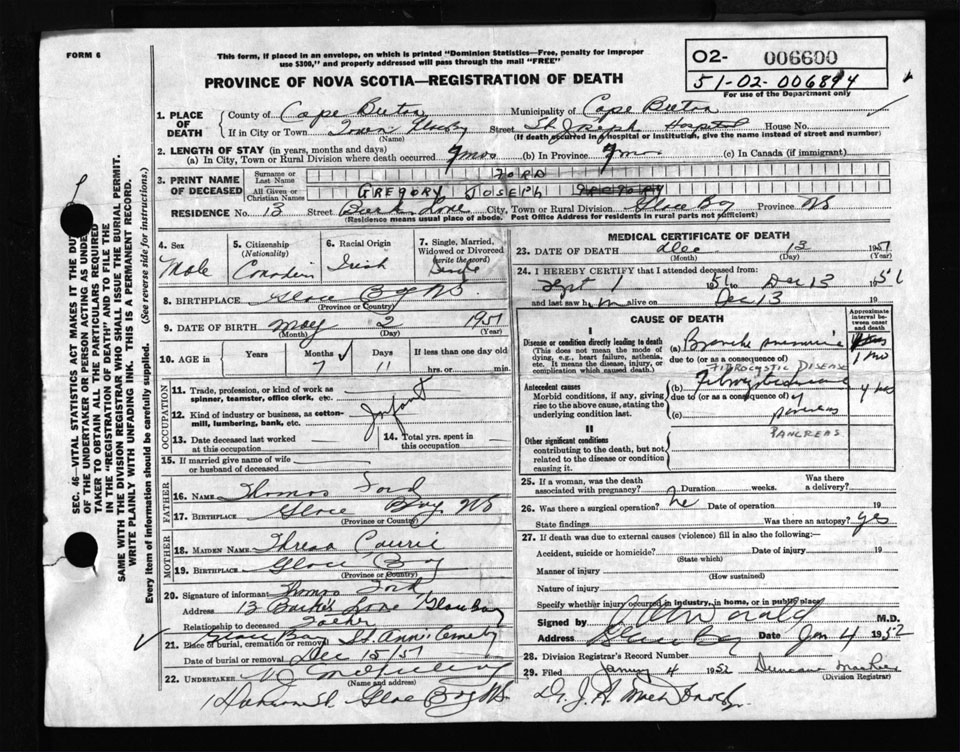 FORM 6
This form, if placed in an envelope, on which is printed "Dominion Statistics—Free, penalty for improper
use $300," and properly addressed will pass through the mail "FREE"
PROVINCE OF NOVA SCOTIA—REGISTRATION OF DEATH
02- 006600
51-02-006894
For use of the Department only
1. PLACE OF DEATH County of Cape Breton Municipality of Cape Breton
If in City or Town Town Glace Bay Street St Joseph Hospital House No.
(Name) (If death occurred in hospital or institution, give the name instead of street and number)
2. LENGTH OF STAY (in years, months and days)
(a) In City, Town or Rural Division where death occurred 7 mos (b) In Province 7 mos (c) In Canada (if immigrant)
3. PRINT NAME OF DECEASED Surname or Last Name FORD
All Given or Christian Names GREGORY JOSEPH
RESIDENCE No. 13 Street City, Town or Rural Division Glace Bay Province NS
(Residence means usual place of abode. Post Office Address for residents in rural parts not sufficient)
4. Sex Male
5. Citizenship (Nationality) Canadian
6. Racial Origin Irish
7. Single, Married, Widowed or Divorced (write the word) Single
8. BIRTHPLACE Glace Bay NS.
(Province or Country)
9. DATE OF BIRTH May 2 1951
(Month) (Day) (Year)
10. AGE in Years Months 7 Days 11 If less than one day old
hrs. or min.
OCCUPATION
11. Trade, profession, or kind of work as spinner, teamster, office clerk, etc.
Infant
12. Kind of industry or business, as cotton-mill, lumbering, bank, etc.
13. Date deceased last worked at this occupation
14. Total yrs. spent in this occupation
15. If married give name of wife or husband of deceased
FATHER
16. NAME Thomas Ford
17. BIRTHPLACE Glace Bay NS
(Province or Country)
MOTHER
18. MAIDEN NAME
19. BIRTHPLACE Glace Bay
(Province or Country)
20. Signature of informant Thomas Ford
Address 13 Glace Bay
Relationship to deceased Father
21. Place of burial, cremation or removal Glace Bay St. Ann's Cemetery
Date of burial or removal Dec 15/51
22. UNDERTAKER
(Name and address)
Glace Bay NS
MEDICAL CERTIFICATE OF DEATH
23. DATE OF DEATH Dec 13 1951
(Month) (Day) (Year)
24. I HEREBY CERTIFY that I attended deceased from:
Sept 1 1951 to Dec 13 1951
and last saw him alive on Dec 13 19
CAUSE OF DEATH
Approximate interval between onset and death
I
Disease or condition directly leading to death
(This does not mean the mode of dying, e.g., heart failure, asthenia, etc. It means the disease, injury, or complication which caused death.)
(a) Broncho pneumonia 1 mo
due to (or as a consequence of)
FIBROCYSTIC DISEASE
Antecedent causes
Morbid conditions, if any, giving rise to the above cause, stating the underlying condition last.
(b)
due to (or as a consequence of) of
(c) pancreas
PANCREAS
II
Other significant conditions
contributing to the death, but not related to the disease or condition causing it.
25. If a woman, was the death associated with pregnancy? Duration weeks. Was there a delivery?
26. Was there a surgical operation? No Date of operation 19
State findings Was there an autopsy? Yes
27. If death was due to external causes (violence) fill in also the following:
Accident, suicide or homicide? Date of injury 19
(State which)
Manner of injury
(How sustained)
Nature of injury
Specify whether injury occurred in industry, in home, or in public place
Signed by M.D.
Address Glace Bay Date Jan 4 1952
28. Division Registrar's Record Number
29. Filed January 4 1952 Duncan
(Division Registrar)
SEC. 46—VITAL STATISTICS ACT MAKES IT THE DUTY
OF THE UNDERTAKER OR PERSON ACTING AS UNDERTAKER
TO OBTAIN ALL THE PARTICULARS REQUIRED
IN THE "REGISTRATION OF DEATH" AND TO FILE THE
SAME WITH THE DIVISION REGISTRAR WHO SHALL ISSUE THE BURIAL PERMIT.
WRITE PLAINLY WITH UNFADING INK. THIS IS A PERMANENT RECORD.
Every item of information should be carefully supplied. (See reverse side for instructions.)